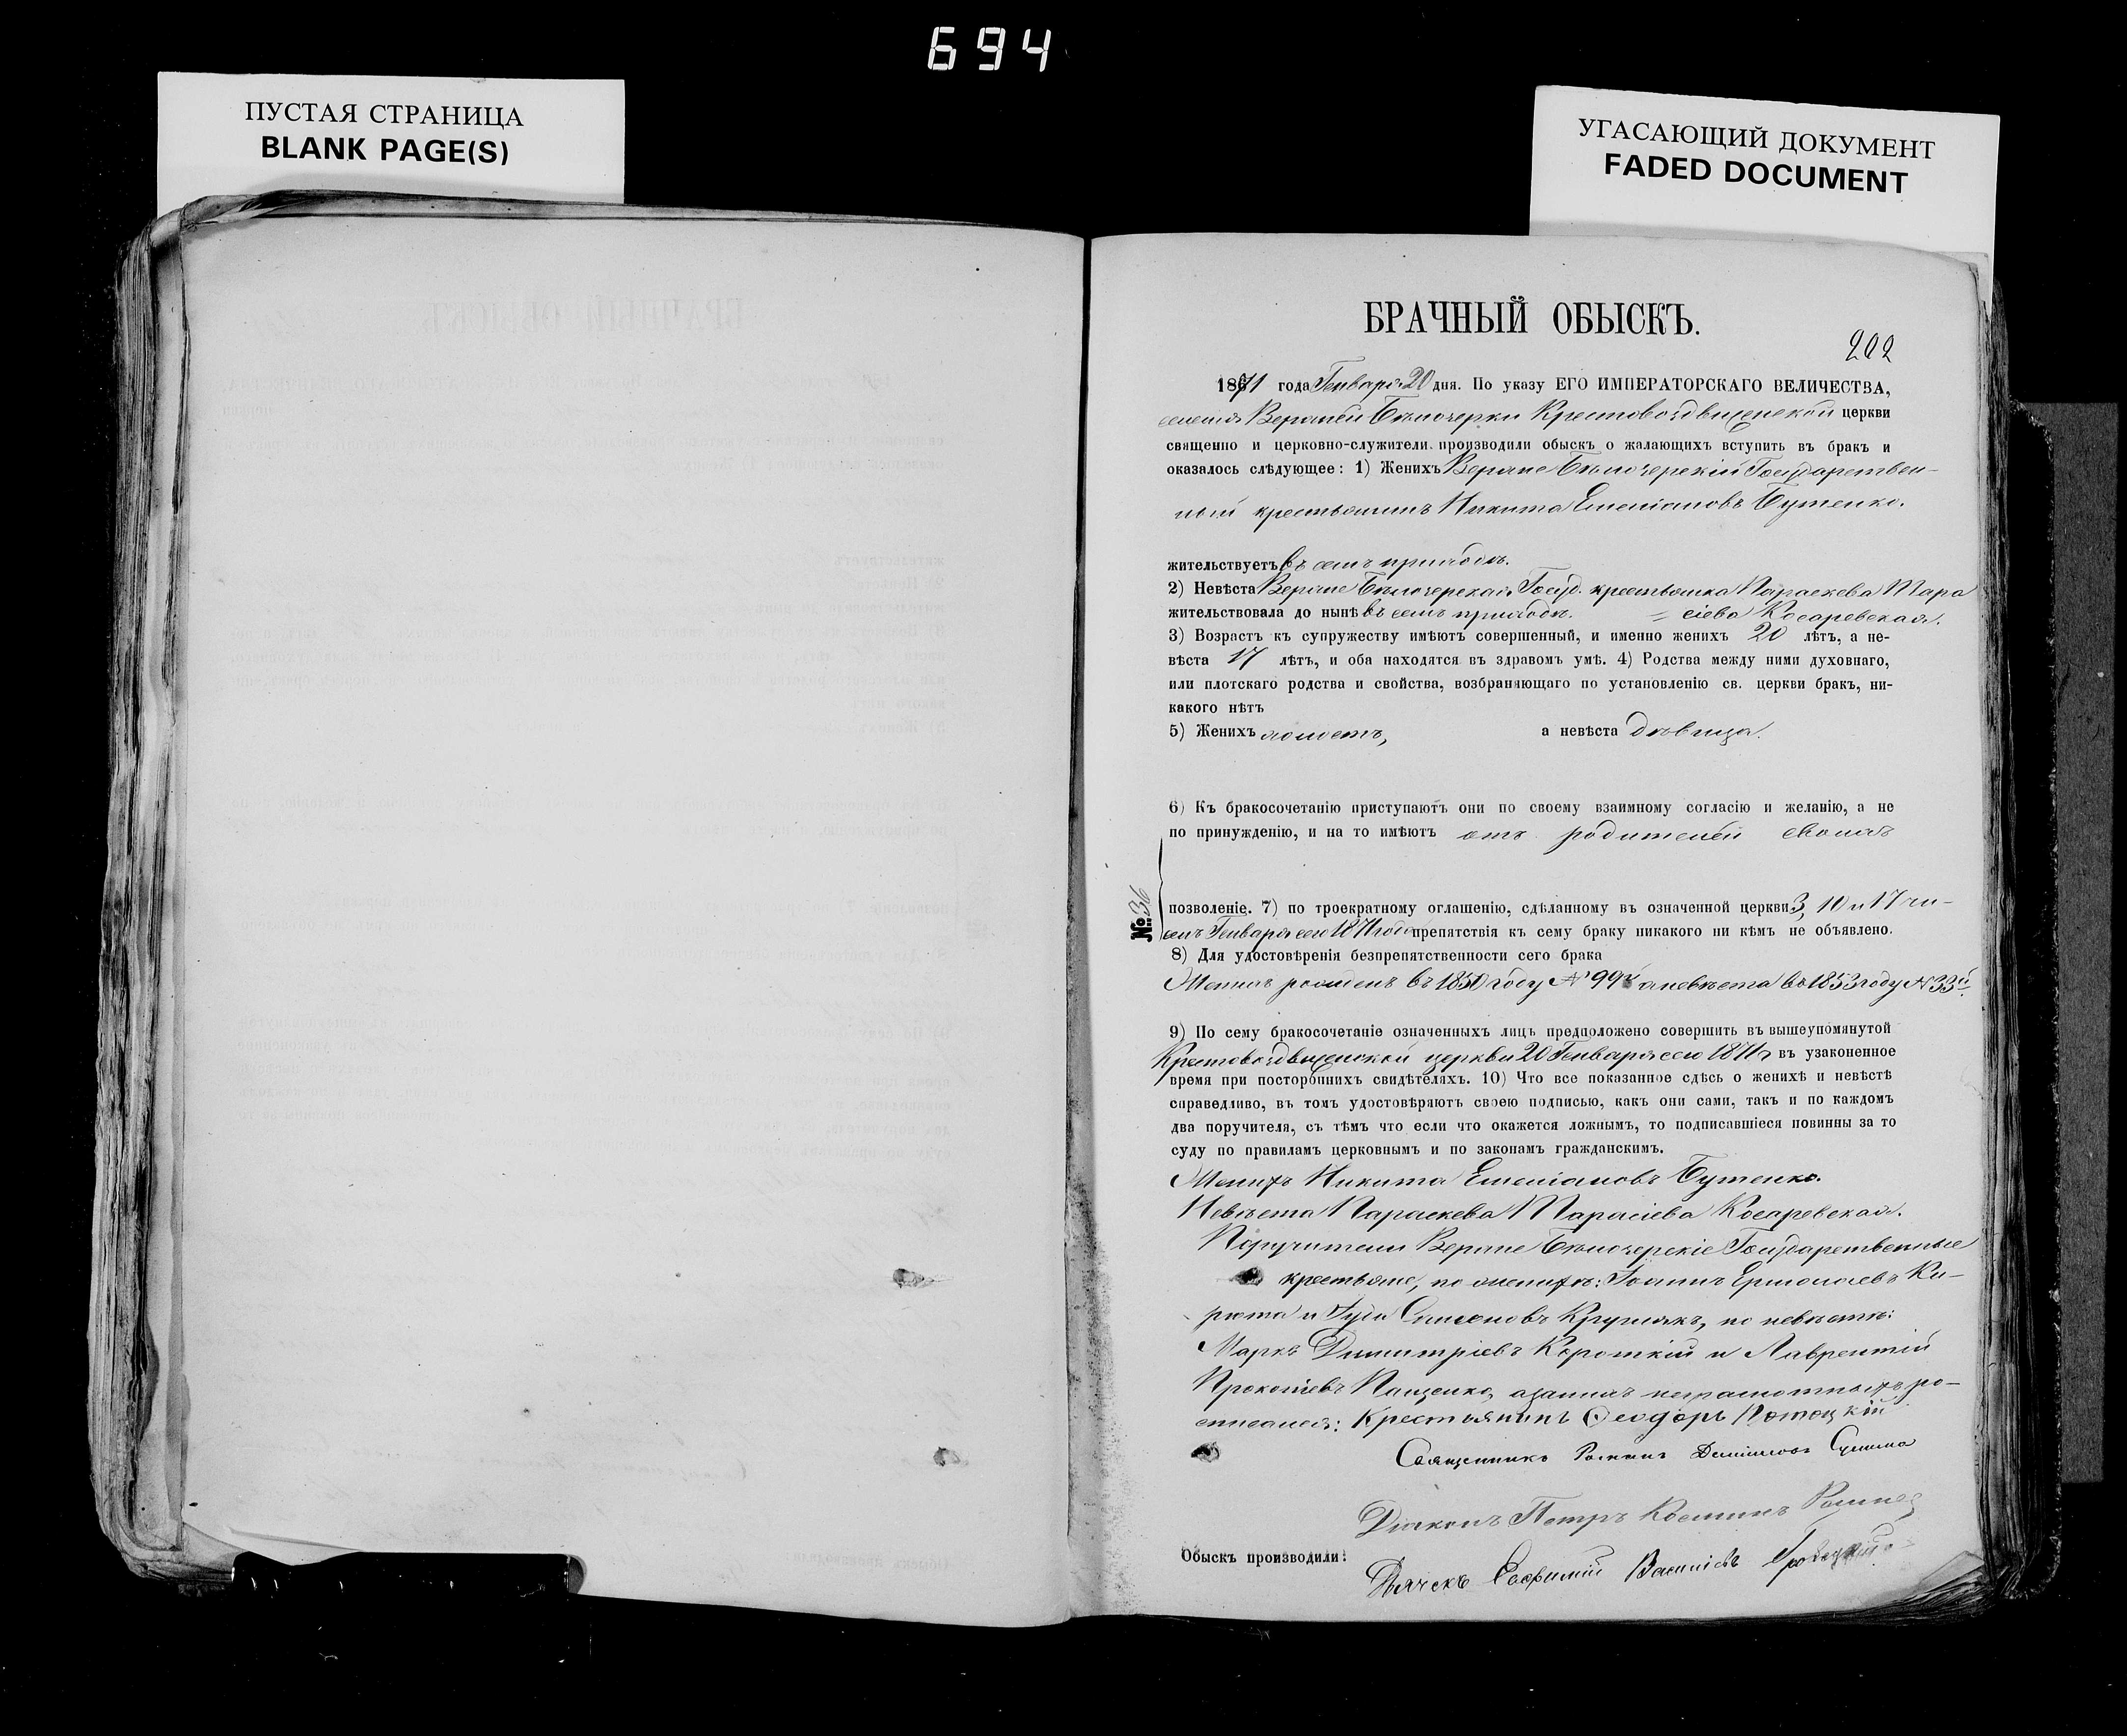 694
ПУСТАЯ СТРАНИЦА
BLANK PAGE(S)
УГАСАЮЩИЙ ДОКУМЕНТ
FADED DOCUMENT
БРАЧНЫЙ ОБЫСКЪ.
202
1871 года Генваря 20 дня. По указу ЕГО ИМПЕРАТОРСКАГО ВЕЛИЧЕСТВА,
селенія Верхней Бѣлозерки Крестовоздвиженской церкви
священно и церковно-служители производили обыскъ о жалающихъ вступить въ бракъ и
оказалось слѣдующее: 1) Женихъ Верхне Бѣлозерскій Государствен-
ный крестьянинъ Никита Емеліановъ Бутенко.
жительствуетъ въ семъ приходѣ.
2) Невѣста Верхне Бѣлозерская Госуд. крестьянка Параскева Тара
жительствовала до нынѣ въ семъ приходѣ. = сіева Косаревская.
3) Возрастъ къ супружеству имѣютъ совершенный, и именно женихъ 20 лѣтъ, а не-
вѣста 17 лѣтъ, и оба находятся въ здравомъ умѣ. 4) Родства между ними духовнаго,
или плотскаго родства и свойства, возбраняющаго по установленію св. церкви бракъ, ни-
какого нѣтъ
5) Женихъ холостъ, а невѣста дѣвица.
6) Къ бракосочетанію приступаютъ они по своему взаимному согласію и желанію, а не
по принужденію, и на то имѣютъ отъ родителей своихъ
№ 36
позволеніе. 7) по троекратному оглашенію, сдѣланному въ означенной церкви 3, 10 и 17 чи-
селъ Генваря сего 1871 года препятствія къ сему браку никакого ни кѣмъ не объявлено.
8) Для удостовѣренія безпрепятственности сего брака
Женихъ рожденъ въ 1850 году № 99й а невѣста въ 1853 году № 33й.
9) По сему бракосочетаніе означенныхъ лицъ предположено совершить въ вышеупомянутой
Крестовоздвиженской церкви 20 Генваря сего 1871 г въ узаконенное
время при постороннихъ свидѣтеляхъ. 10) Что все показанное сдѣсь о женихѣ и невѣстѣ
справедливо, въ томъ удостовѣряютъ своею подписью, какъ они сами, такъ и по каждомъ
два поручителя, съ тѣмъ что если что окажется ложнымъ, то подписавшіеся повинны за то
суду по правиламъ церковнымъ и по законамъ гражданскимъ.
Женихъ Никита Емеліановъ Бутенко.
Невѣста Параскева Тарасіева Косаревская.
Поручители Верхне Бѣлозерскіе Государственные
крестьяне, по женихѣ: Іоаннъ Ермолаевъ Ки-
рюта и Гурій Симеоновъ Кругликъ, по невѣстѣ:
Маркъ Димитріевъ Короткій и Лаврентій
Прокопіевъ Пащенко, а за нихъ неграмотныхъ ро-
списался: Крестьянинъ Ѳеодоръ Потоцкій
Священникъ Романъ Даниловъ Сулима
Діаконъ Петръ Косминъ
Обыскъ производили:
Дьячекъ Евфимій Васильевъ